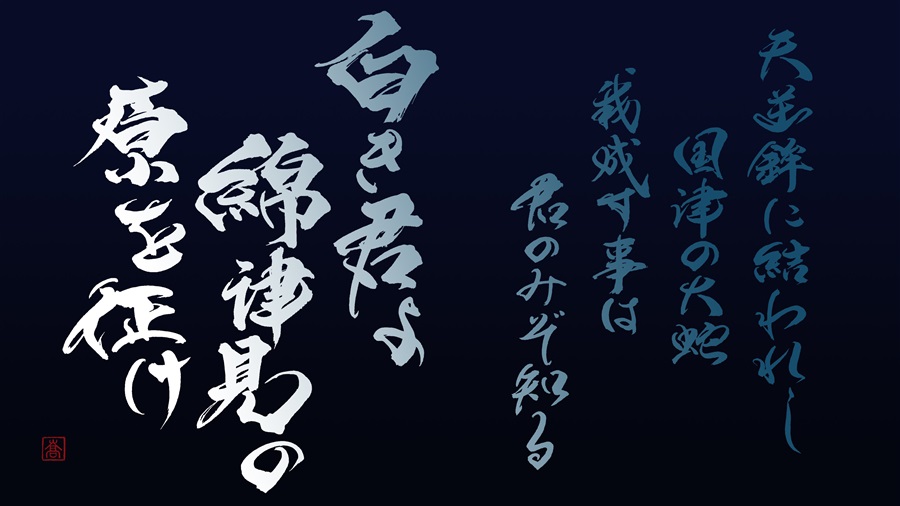 天逆鉾に結われし
国津の大蛇
我成す事は
君のみぞ知る
白き君よ
綿津見の
原を征け